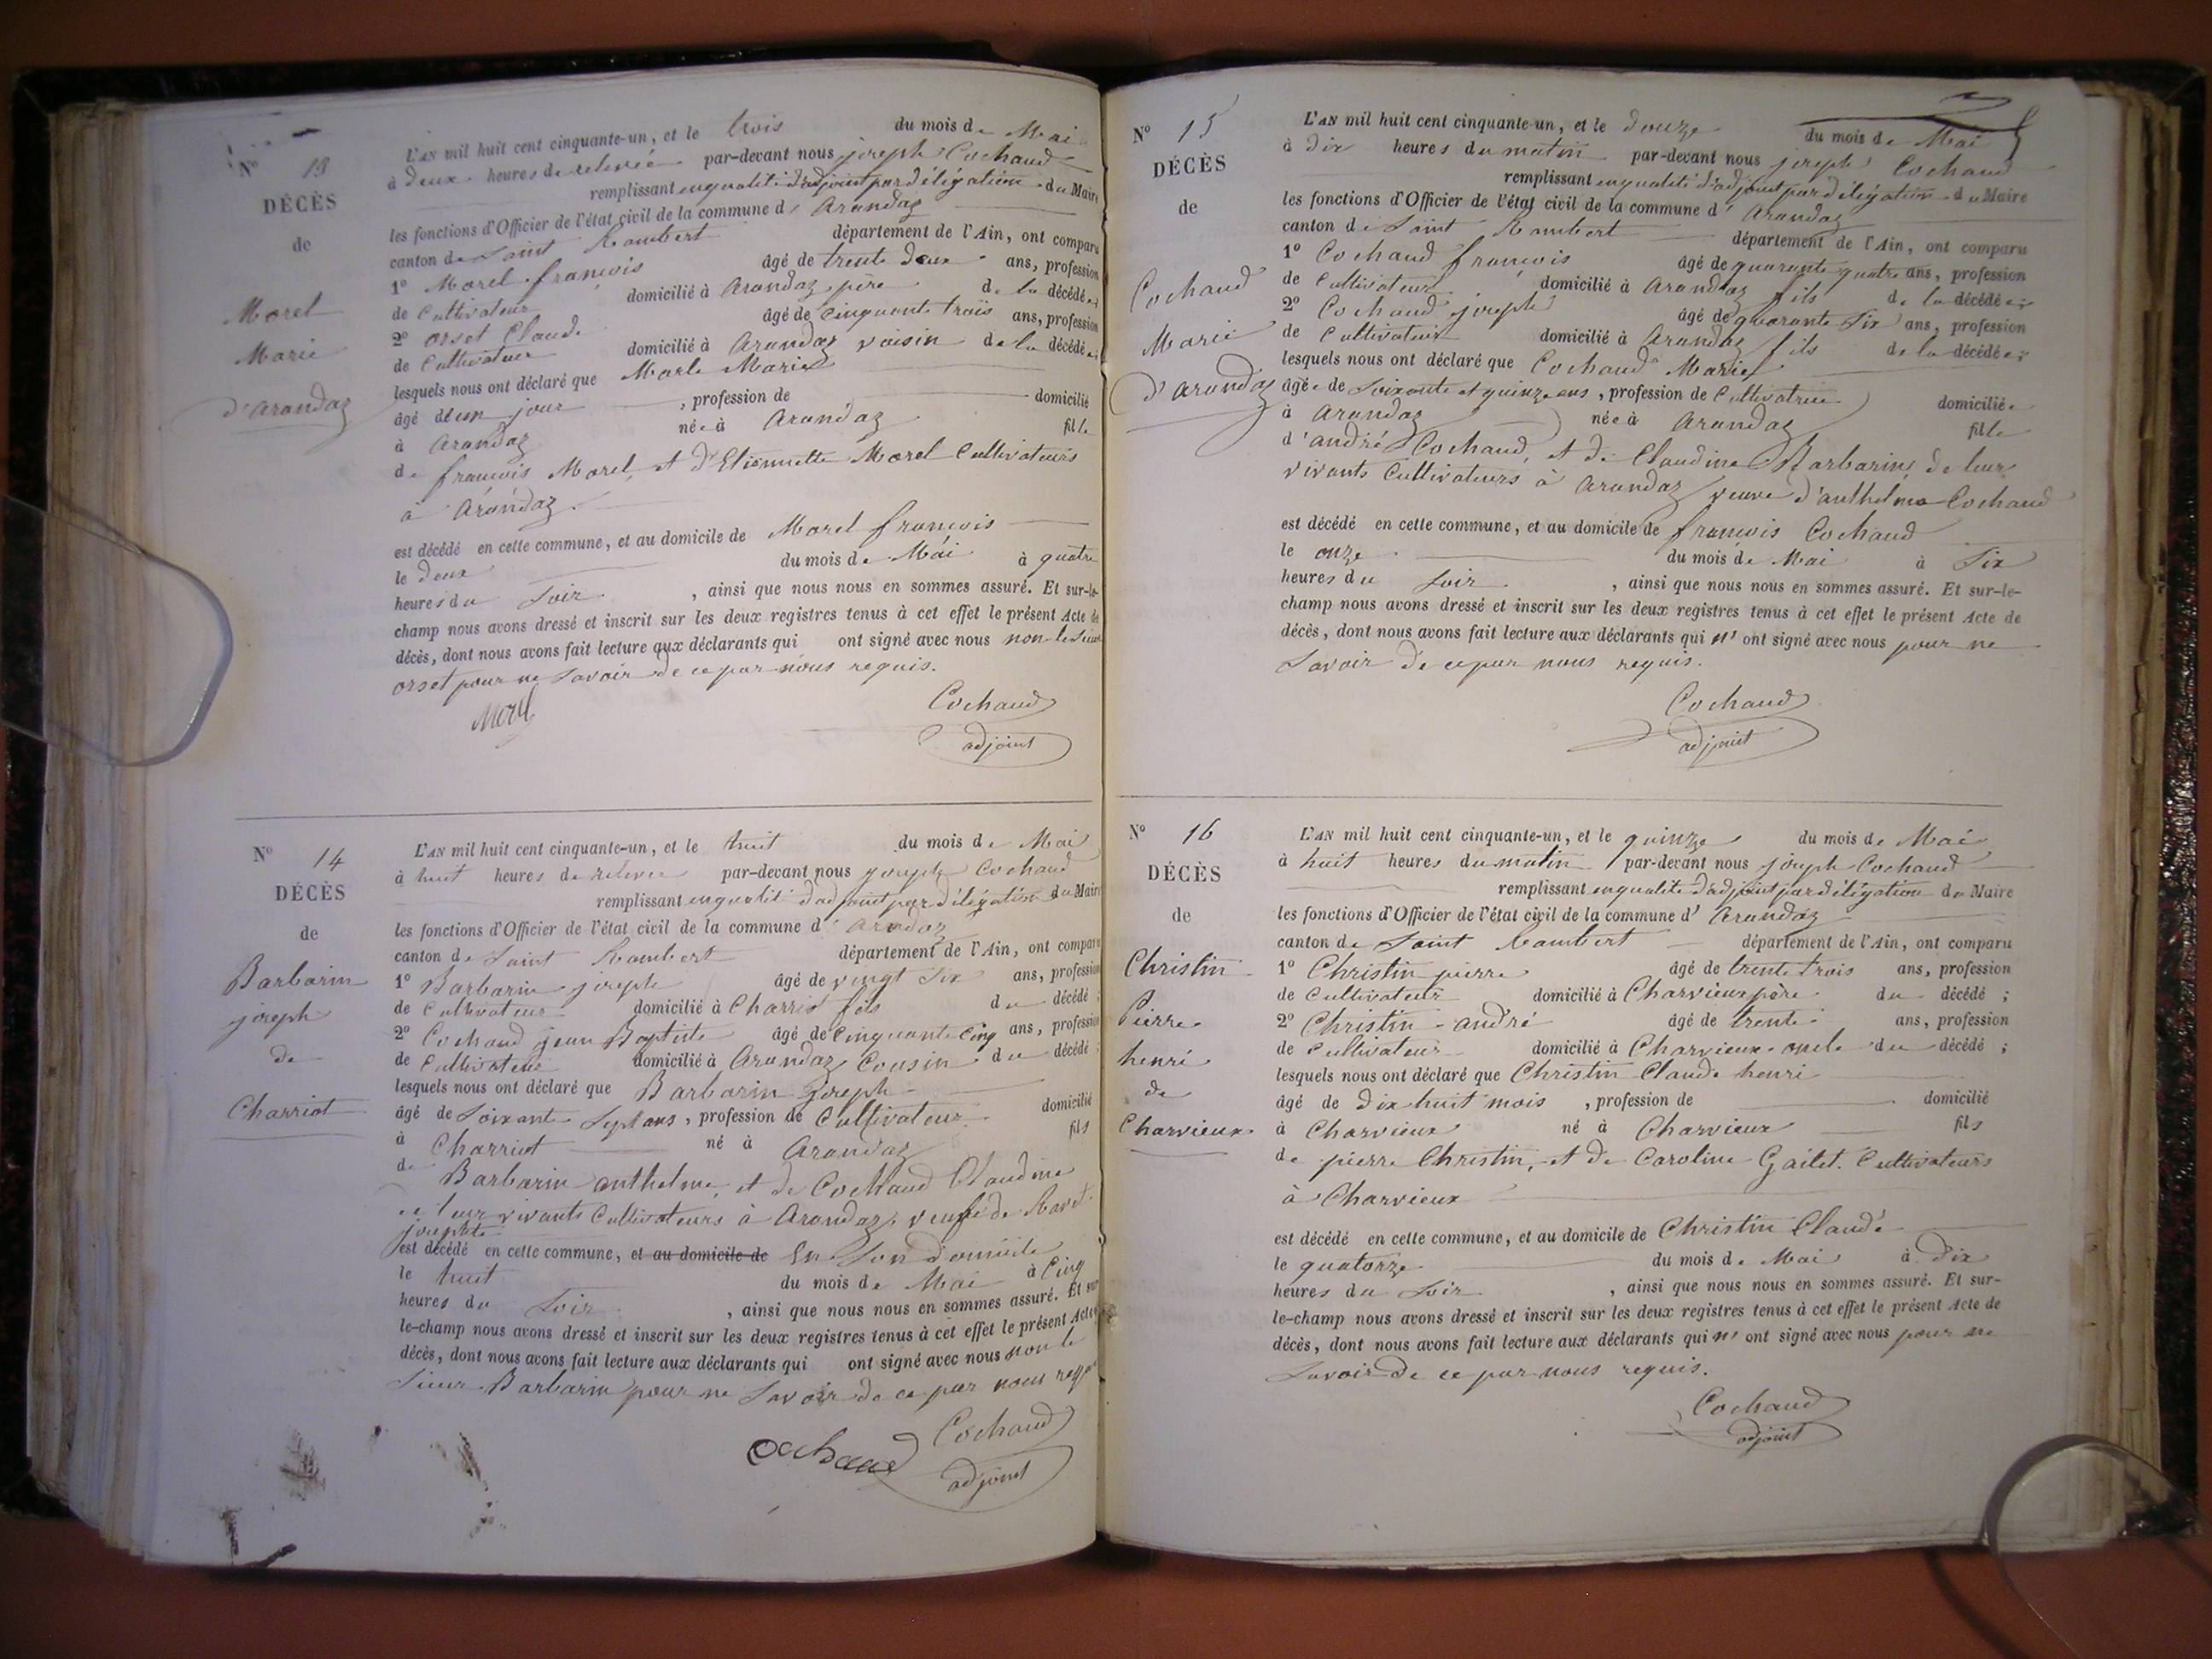 N° 13
DÉCÈS
de
Morel
Marie
d'Arandaz
L'AN mil huit cent cinquante-un, et le trois du mois de Mai
à deux heures de relevée par-devant nous joseph Cochaud
remplissant en qualité d'adjoint par délégation du Maire
les fonctions d'Officier de l'état civil de la commune d' Arandaz
canton de Saint Rambert département de l'Ain, ont comparu
1° Morel françois âgé de trente deux ans, profession
de Cultivateur domicilié à Arandaz père de la décédée;
2° orset Claude âgé de Cinquante trois ans, profession
de Cultivateur domicilié à Arandaz voisin de la décédée;
lesquels nous ont déclaré que Marle Marie
âgé d'un jour , profession de domicilié
à Arandaz née à Arandaz fille
de françois Morel, et d'Etiennette Morel Cultivateurs
à Arandaz.
est décédé en cette commune, et au domicile de Morel françois
le deux du mois de Mai à quatre
heures du Soir , ainsi que nous nous en sommes assuré. Et sur-le-
champ nous avons dressé et inscrit sur les deux registres tenus à cet effet le présent Acte de
décès, dont nous avons fait lecture aux déclarants qui ont signé avec nous non le Sieur
orset pour ne Savoir de ce par nous requis.
Morel
Cochaud
adjoint
N° 14
DÉCÈS
de
Barbarin
joseph
de
Charriot
L'AN mil huit cent cinquante-un, et le huit du mois de Mai
à huit heures de relevée par-devant nous joseph Cochaud
remplissant en qualité d'adjoint par délégation du Maire
les fonctions d'Officier de l'état civil de la commune d' Arandaz
canton de Saint Rambert département de l'Ain, ont comparu
1° Barbarin joseph âgé de vingt Six ans, profession
de Cultivateur domicilié à Charriot fils du décédé;
2° Cochaud jean Baptiste âgé de Cinquante Cinq ans, profession
de Cultivateur domicilié à Arandaz Cousin du décédé;
lesquels nous ont déclaré que Barbarin Joseph
âgé de Soixante Sept ans, profession de Cultivateur domicilié
à Charriot né à Arandaz fils
de Barbarin anthelme, et de Cochaud Claudine
de leur vivants Cultivateurs à Arandaz, veuf de Ravet
josephte
est décédé en cette commune, et au domicile de En Son domicile
le huit du mois de Mai à Cinq
heures du Soir , ainsi que nous nous en sommes assuré. Et sur
le-champ nous avons dressé et inscrit sur les deux registres tenus à cet effet le présent Acte
décès, dont nous avons fait lecture aux déclarants qui ont signé avec nous non le
Sieur Barbarin pour ne Savoir de ce par nous requis
Cochaud
Cochaud
adjoint
N° 15
DÉCÈS
de
Cochaud
Marie
d'Arandaz
L'AN mil huit cent cinquante-un, et le douze du mois de Mai
à dix heures du matin par-devant nous joseph Cochaud
remplissant en qualité d'adjoint par délégation du Maire
les fonctions d'Officier de l'état civil de la commune d' Arandaz
canton de Saint Rambert département de l'Ain, ont comparu
1° Cochaud françois âgé de quarante quatre ans, profession
de Cultivateur domicilié à Arandaz fils de la décédée;
2° Cochaud joseph âgé de quarante Six ans, profession
de Cultivateur domicilié à Arandaz fils de la décédée;
lesquels nous ont déclaré que Cochaud Marie
âgée de Soixante et quinze ans, profession de Cultivatrice domiciliée
à Arandaz née à Arandaz fille
d'andré Cochaud, et de Claudine Barbarin, de leur
vivants Cultivateurs à Arandaz, veuve d'anthelme Cochaud
est décédé en cette commune, et au domicile de françois Cochaud
le onze du mois de Mai à Six
heures du Soir , ainsi que nous nous en sommes assuré. Et sur-le-
champ nous avons dressé et inscrit sur les deux registres tenus à cet effet le présent Acte de
décès, dont nous avons fait lecture aux déclarants qui n' ont signé avec nous pour ne
Savoir de ce par nous requis.
Cochaud
adjoint
N° 16
DÉCÈS
de
Christin
Pierre
henri
de
Charvieux
L'AN mil huit cent cinquante-un, et le quinze du mois de Mai
à huit heures du matin par-devant nous joseph Cochaud
remplissant en qualité d'adjoint par délégation du Maire
les fonctions d'Officier de l'état civil de la commune d' Arandaz
canton de Saint Rambert département de l'Ain, ont comparu
1° Christin pierre âgé de trente trois ans, profession
de Cultivateur domicilié à Charvieux père du décédé;
2° Christin andré âgé de trente ans, profession
de Cultivateur domicilié à Charvieux oncle du décédé;
lesquels nous ont déclaré que Christin Claude henri
âgé de dix huit mois , profession de domicilié
à Charvieux né à Charvieux fils
de pierre Christin, et de Caroline Gaitet. Cultivateurs
à Charvieux
est décédé en cette commune, et au domicile de Christin Claude
le quatorze du mois de Mai à Dix
heures du Soir , ainsi que nous nous en sommes assuré. Et sur-
le-champ nous avons dressé et inscrit sur les deux registres tenus à cet effet le présent Acte de
décès, dont nous avons fait lecture aux déclarants qui n' ont signé avec nous pour ne
Savoir de ce par nous requis.
Cochaud
adjoint